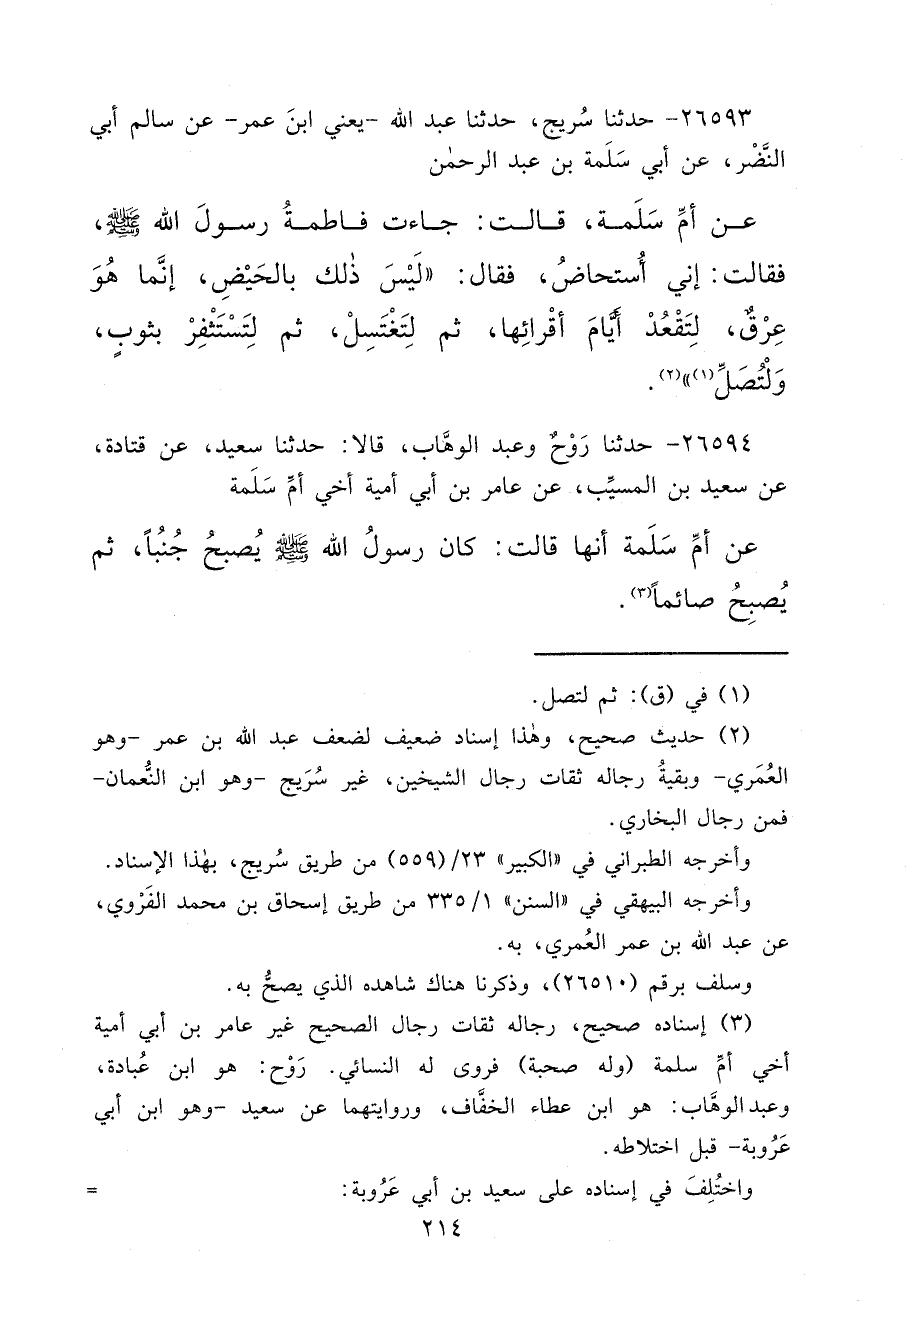 ٢٦٥٩٣- حدثنا سُريج، حدثنا عبد الله -يعني ابنَ عمر- عن سالم أبي
النَّضْر، عن أبي سَلَمة بن عبد الرحمٰن
عـن أمِّ سَلَمـة، قـالـت: جـاءت فـاطمـةُ رسـولَ الله ﷺ،
فقالت: إني أُستحاضُ، فقال: «لَيْسَ ذٰلك بالحَيْضِ، إنَّما هُوَ
عِرْقٌ، لِتَقْعُدْ أيَّامَ أقْرائِها، ثم لِتَغْتَسِلْ، ثم لِتَسْتَثْفِرْ بثوبٍ،
وَلْتُصَلِّ(١)»(٢).
٢٦٥٩٤- حدثنا رَوْحٌ وعبد الوهَّاب، قالا: حدثنا سعيد، عن قتادة،
عن سعيد بن المسيِّب، عن عامر بن أبي أمية أخي أمِّ سَلَمة
عن أمِّ سَلَمة أنها قالت: كان رسولُ الله ﷺ يُصبحُ جُنُباً، ثم
يُصبِحُ صائماً(٣).
(١) في (ق): ثم لتصل.
(٢) حديث صحيح، وهٰذا إسناد ضعيف لضعف عبد الله بن عمر -وهو
العُمَري- وبقيةُ رجاله ثقات رجال الشيخين، غير سُرَيج -وهو ابن النُّعمان-
فمن رجال البخاري.
وأخرجه الطبراني في «الكبير» ٢٣/(٥٥٩) من طريق سُريج، بهٰذا الإسناد.
وأخرجه البيهقي في «السنن» ١/ ٣٣٥ من طريق إسحاق بن محمد الفَرْوي،
عن عبد الله بن عمر العُمري، به.
وسلف برقم (٢٦٥١٠)، وذكرنا هناك شاهده الذي يصحُّ به.
(٣) إسناده صحيح، رجاله ثقات رجال الصحيح غير عامر بن أبي أمية
أخي أمِّ سلمة (وله صحبة) فروى له النسائي. رَوْح: هو ابن عُبادة،
وعبد الوهَّاب: هو ابن عطاء الخفَّاف، وروايتهما عن سعيد -وهو ابن أبي
عَرُوبة- قبل اختلاطه.
واختُلِفَ في إسناده على سعيد بن أبي عَرُوبة: =
٢١٤